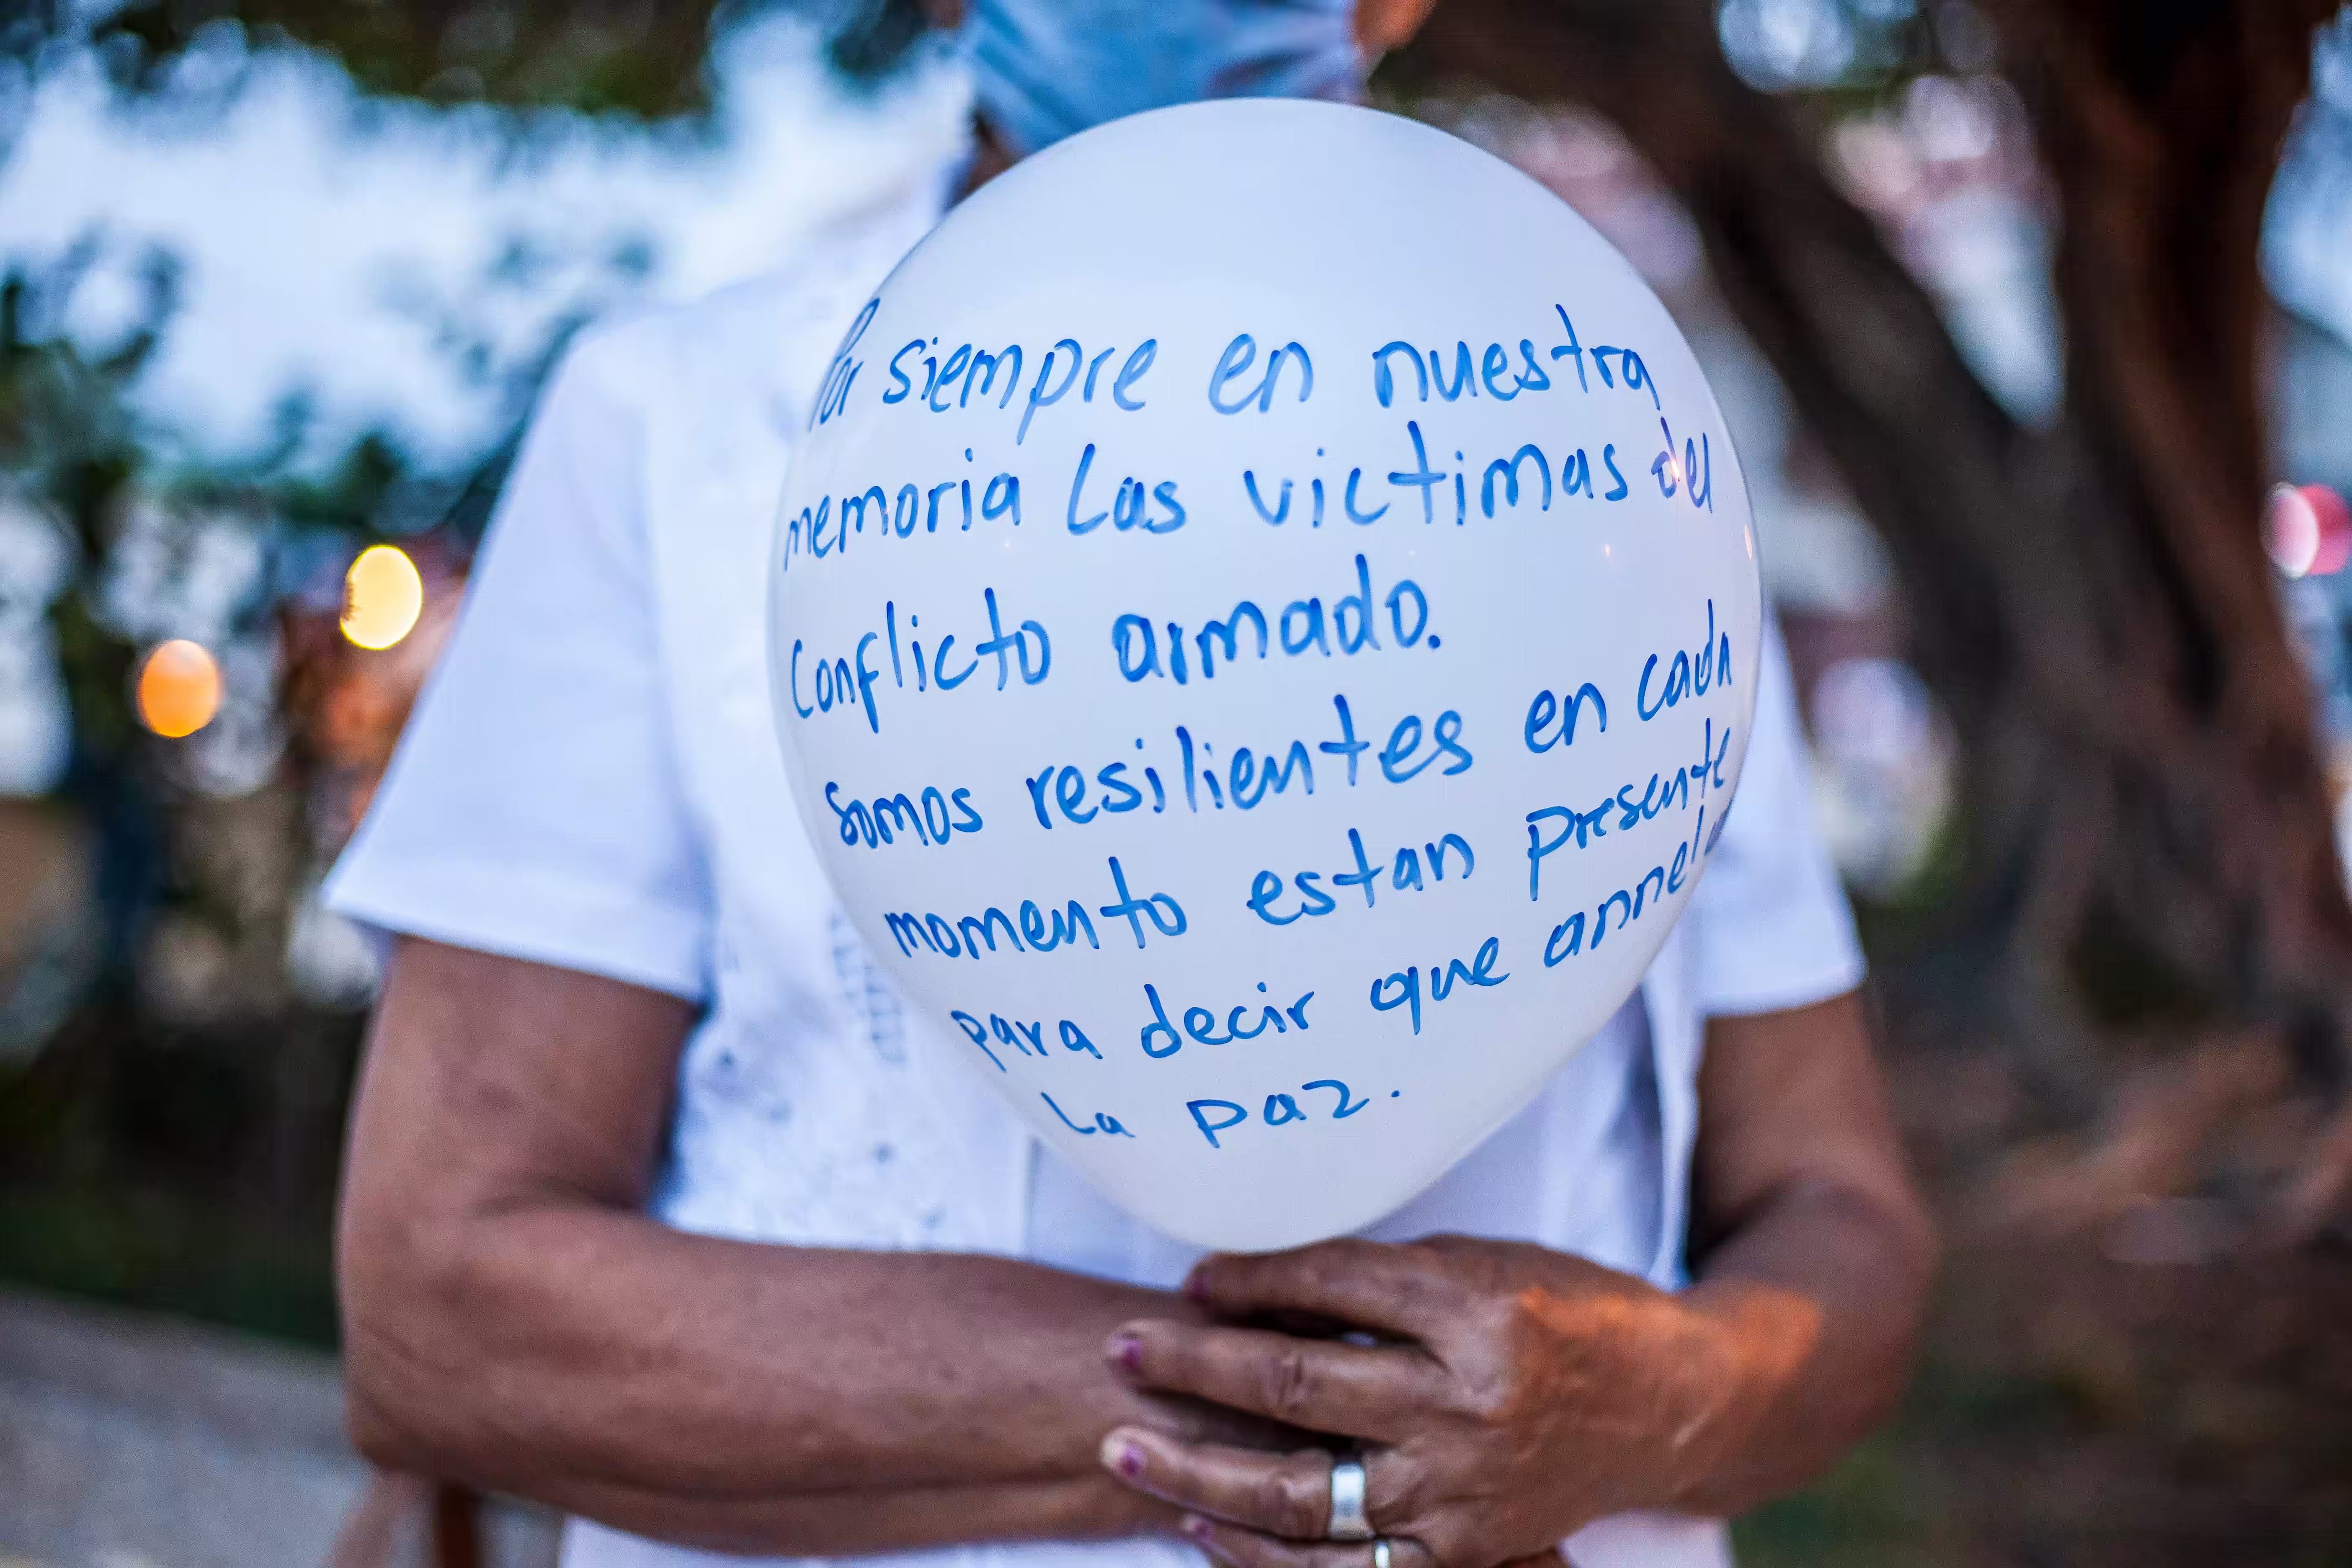 Por siempre en nuestra
memoria Las victimas del
Conflicto armado.
Somos resilientes en cada
momento estan presente
para decir que
La paz.